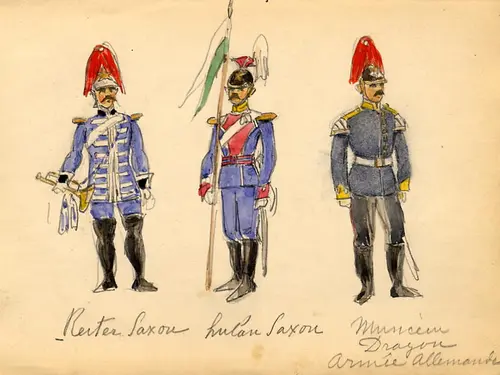 Reiter Saxon
hulan Saxon
Municien
Dragon
Armée Allemande